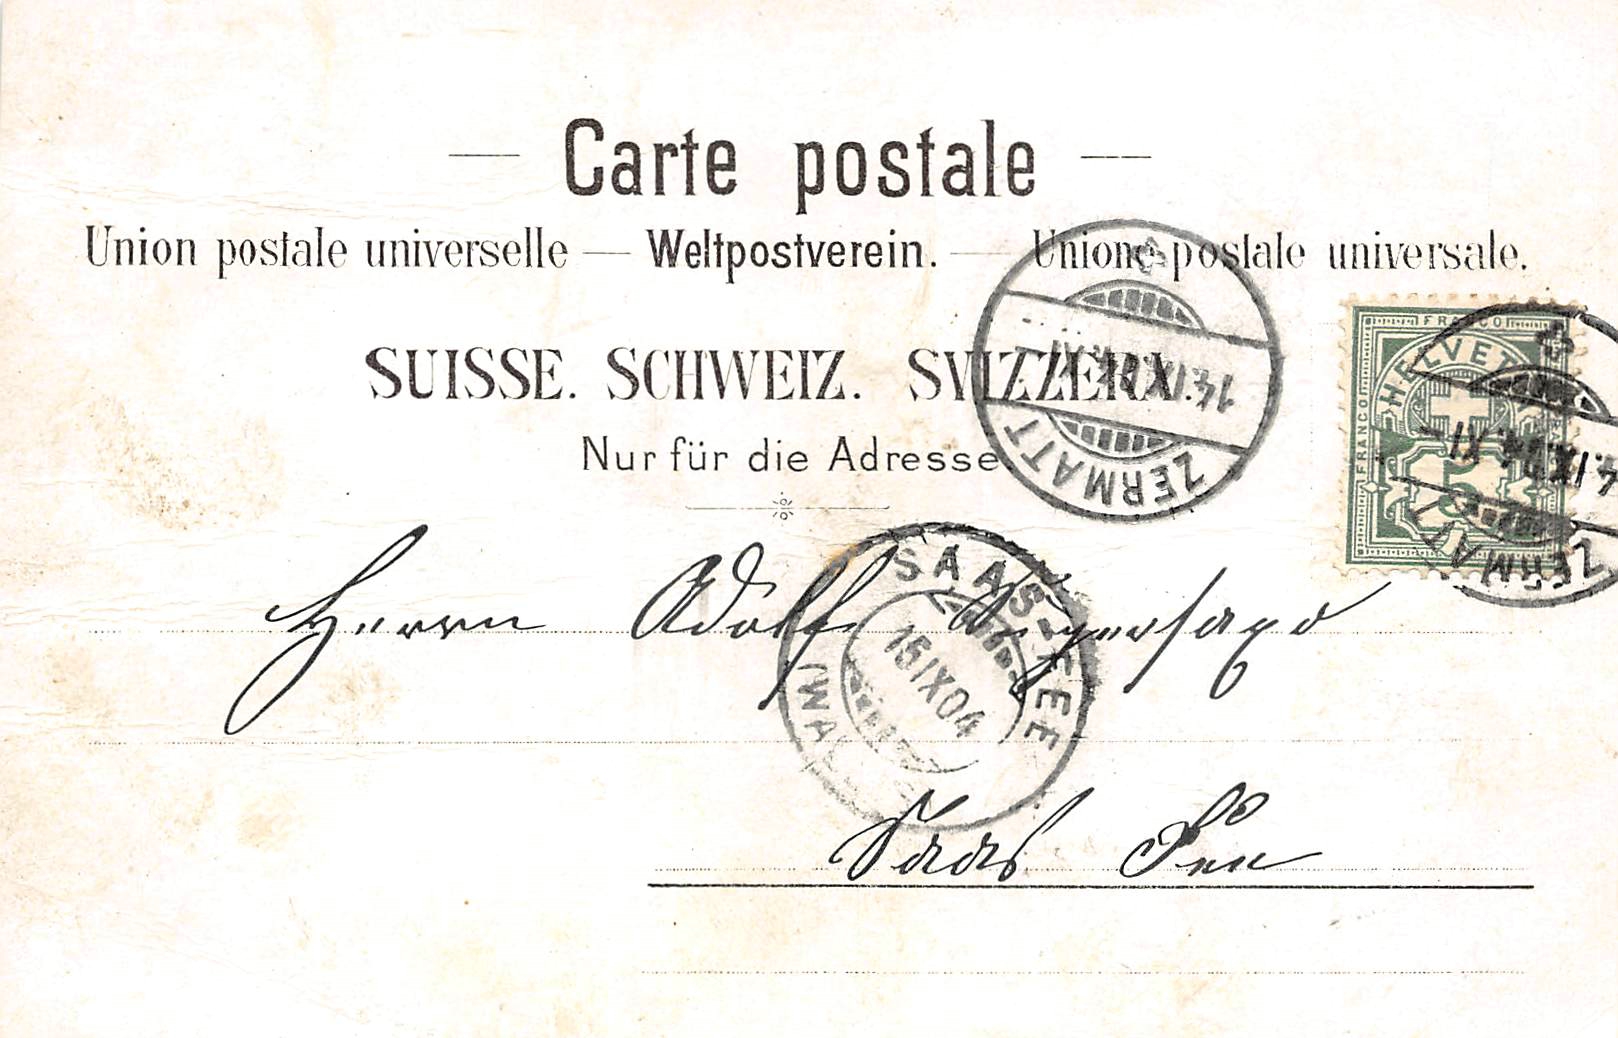 Carte postale
Union postale universelle — Weltpostverein. — Unione postale universale.
SUISSE. SCHWEIZ. SVIZZERA.
Nur für die Adresse
ZERMATT
14.IX.04.XI
FRANCO
HELVETIA
FRANCO
5
ZERMATT
4.IX.04.XI
SAAS-FEE
15.IX.04
Herrn Adolf
Saas Fee